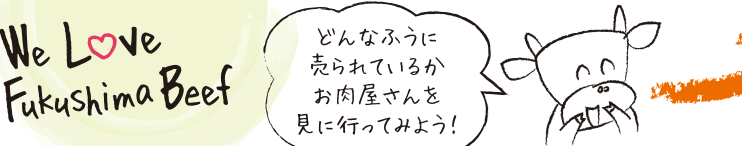 We Love
Fukushima Beef
どんなふうに
売られているか
お肉屋さんを
見に行ってみよう!